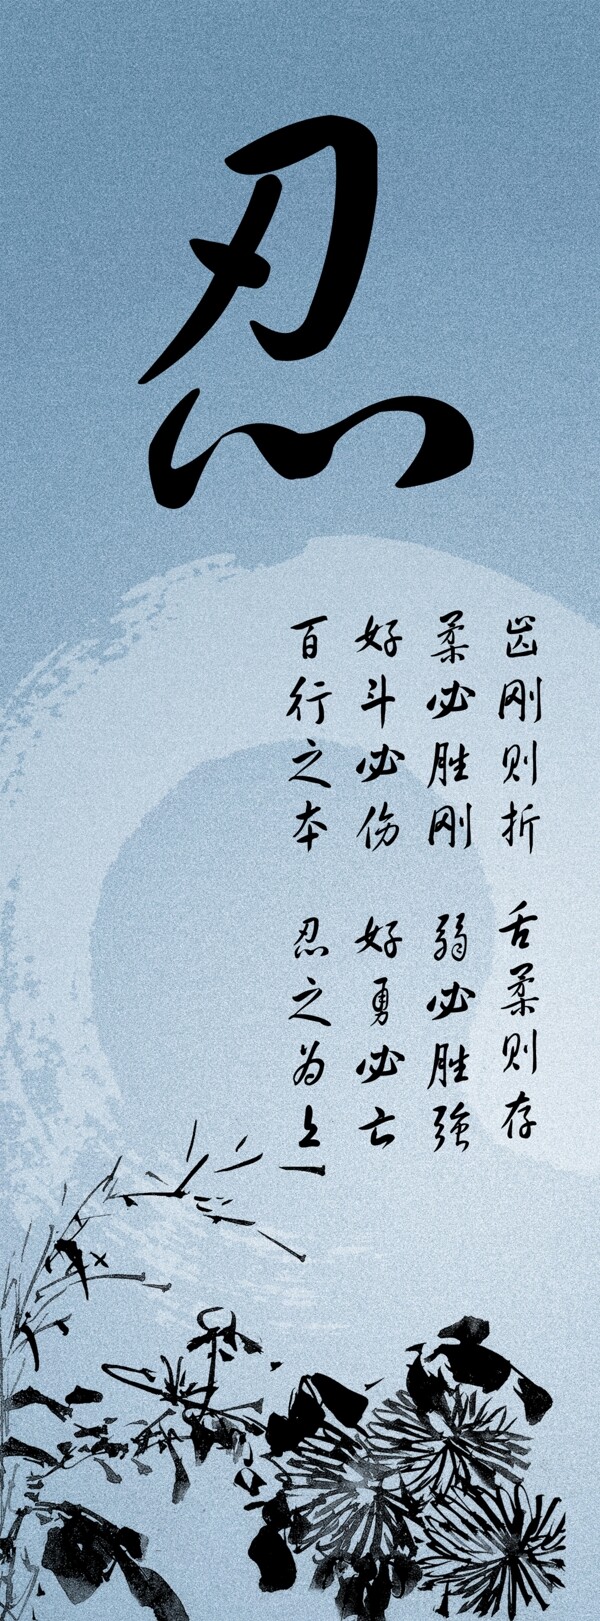 忍
齿刚则折 舌柔则存
柔必胜刚 弱必胜强
好斗必伤 好勇必亡
百行之本 忍之为上